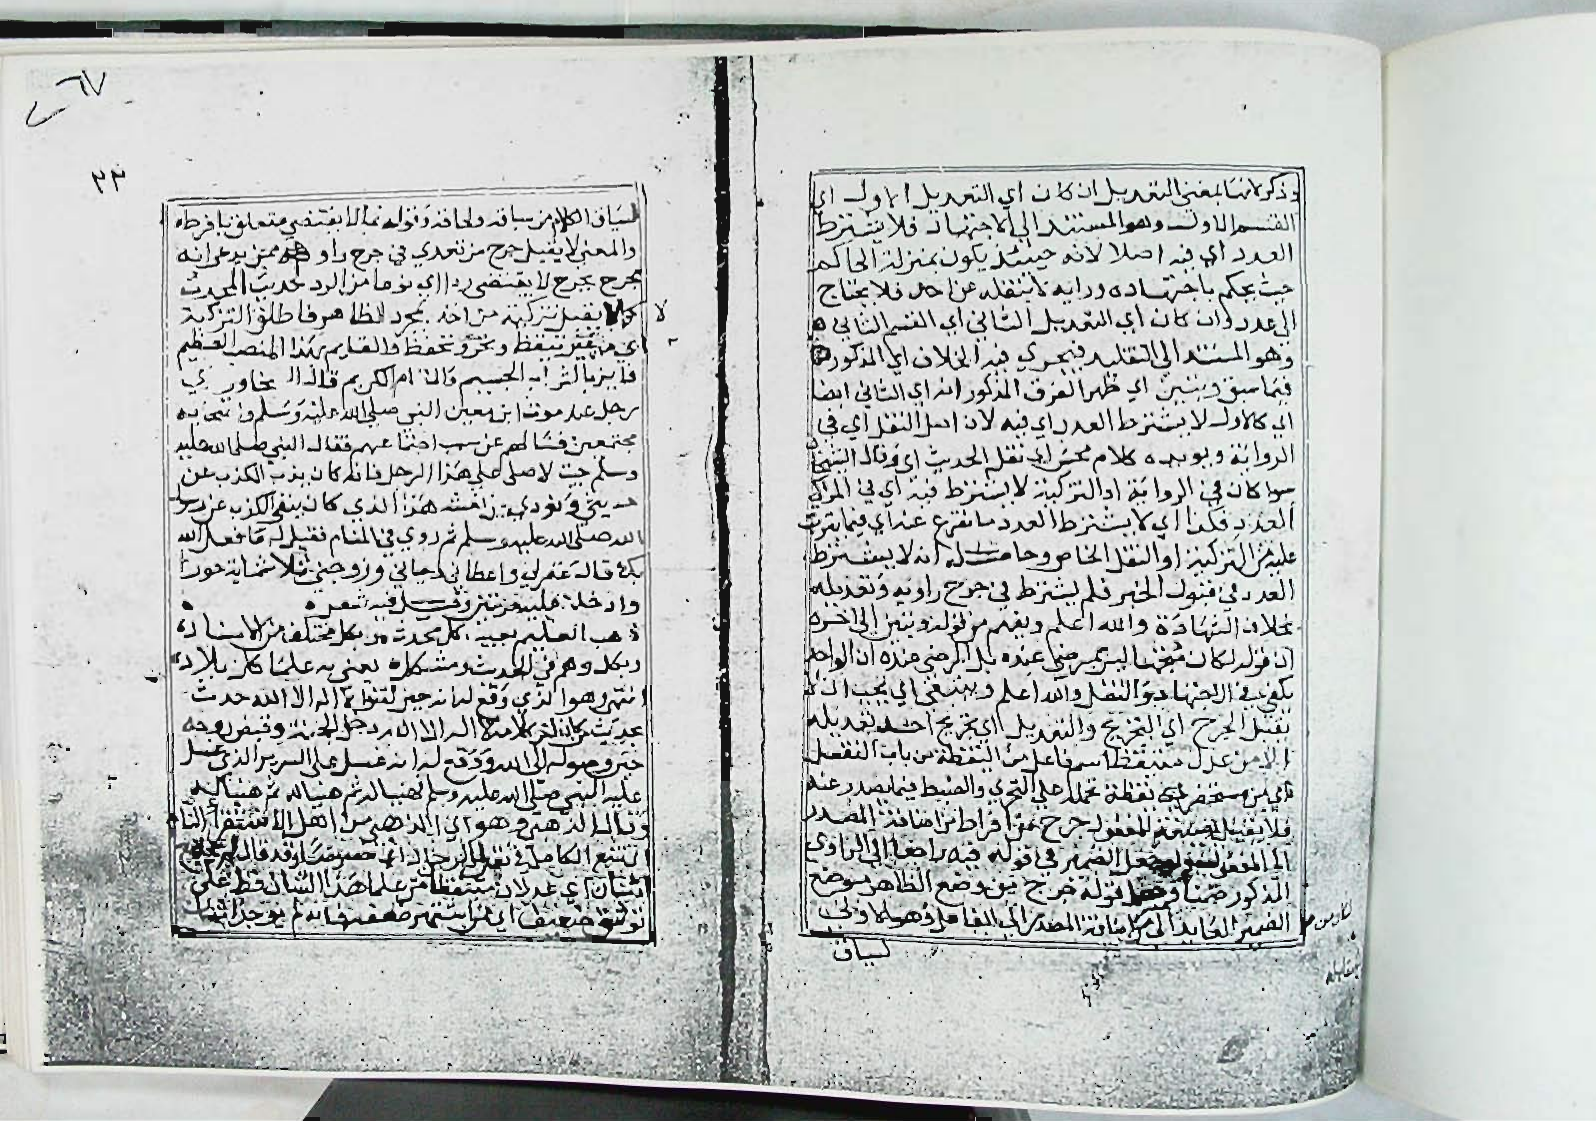 وذكر لانها لمعنى التعديل ان كان اي التعديل الاول اي
القسم الاول وهو المستند الى الاجتهاد فلا يشترط
العدد اي فيه اصلا لانه حينئذ يكون بمنزلة الحاكم
حيث يحكم باجتهاده ورايه لا بنقله عن احد فلا يحتاج
الى عدد وان كان اي التعديل الثاني اي القسم الثاني
وهو المستند الى التقليد فيجري فيه الخلاف اي المذكور
فيما سبق ويتبين اي ظهر الفرق المذكور انه اي الثاني ايضا
اي كالاول لا يشترط العدد اي فيه لان اصل النقل اي في
الرواية ويويده كلام محش اي نقل الحديث اي وقال الشيخ
سوا كان في الرواية او التزكية لا يشترط فيه اي في المزكي
العدد فكذا اي لا يشترط العدد ما تفرع عنه اي فيما يترتب
عليه من التزكية او النقل الخاص وحاصله انه لا يشترط
العدد في قبول الخبر فلم يشترط في جرح راويه وتعديله
بخلاف الشهادة والله اعلم ويفهم من قوله وتبين الى اخره
ان قوله لكان متجها ليس بمرضي عنده بل المرضي عنده ان الواحد
يكفي في الاجتهاد والنقل والله اعلم وينبغي اي يجب ان لا
يقبل الجرح اي التجريح والتعديل اي تجريح احد وتعديله
الا من عدل متيقظ اسم فاعل من اليقظة من باب التفعل
اي من مستحضر يقظة تحمله على التحري والضبط فيما يصدر عنه
فلا يقبل جرح من افرط من اضافة المصدر
الى المفعول فيه راجعا الى الراوي
المذكور ضمنا قوله جرح من وضع الظاهر موضع
الضمير العايد الى اضافة المصدر الى الفاعل وهو اولى
لسياق
٦٧
٣٣
لسياق الكلام من سباقه ولحاقه وقوله بما لا يقتضي متعلق بافرط
والمعنى لا يقبل جرح من تعدي في جرح راو ممن يدعي انه
بجرح بجرح لا يقتضي ردا اي نوعا من الرد حديث المحدث
كما لا يقبل تزكية من اخذ بمجرد الظاهر فاطلق التزكية
لا
اي من غير تيقظ وتحر وتحفظ فالقايم بهذا المنصب العظيم
فايز بالثواب الجسيم والاكرام الكريم قال البخاري راي
رجل عند موت ابن معين النبي صلى الله عليه وسلم واصحابه
مجتمعين فسالهم عن سبب اجتماعهم فقال النبي صلى الله عليه
وسلم جيت لاصلي على هذا الرجل فانه كان يذب الكذب عن
حديثي ونودي بين نعشه هذا الذي كان ينفي الكذب عن رسول
الله صلى الله عليه وسلم ثم روي في المنام فقيل له ما فعل الله
بك قال غفر لي واعطاني وحباني وزوجني ثلاثماية حورا
وادخلني عليه مرتين وقيل فيه شعر
ذهب العليم بعيب كل محدث وبكل مختلف من الاسناد
وبكل وهم في الحديث ومشكل يعني به علما كل بلاد
انتهى وهو الذي وقع له انه حين لقنوا لا اله الا الله حدث
بحديث من كان اخر كلامه لا اله الا الله دخل الجنة وقبض روحه
حين وصوله الى الله ووقع له انه غسل على السرير الذي غسل
عليه النبي صلى الله عليه وسلم فهنيا له ثم هنيا له ثم هنيا له
وقال الذهبي وهو اي الذهبي من اهل الاستقراء التام
التتبع الكامل في نقد الرجال لم يجتمع
اثنان اي عدلان من علما هذا الشان قط على
توثيق ضعيف اي من اشتهر ضعفه فانه لم يوجد